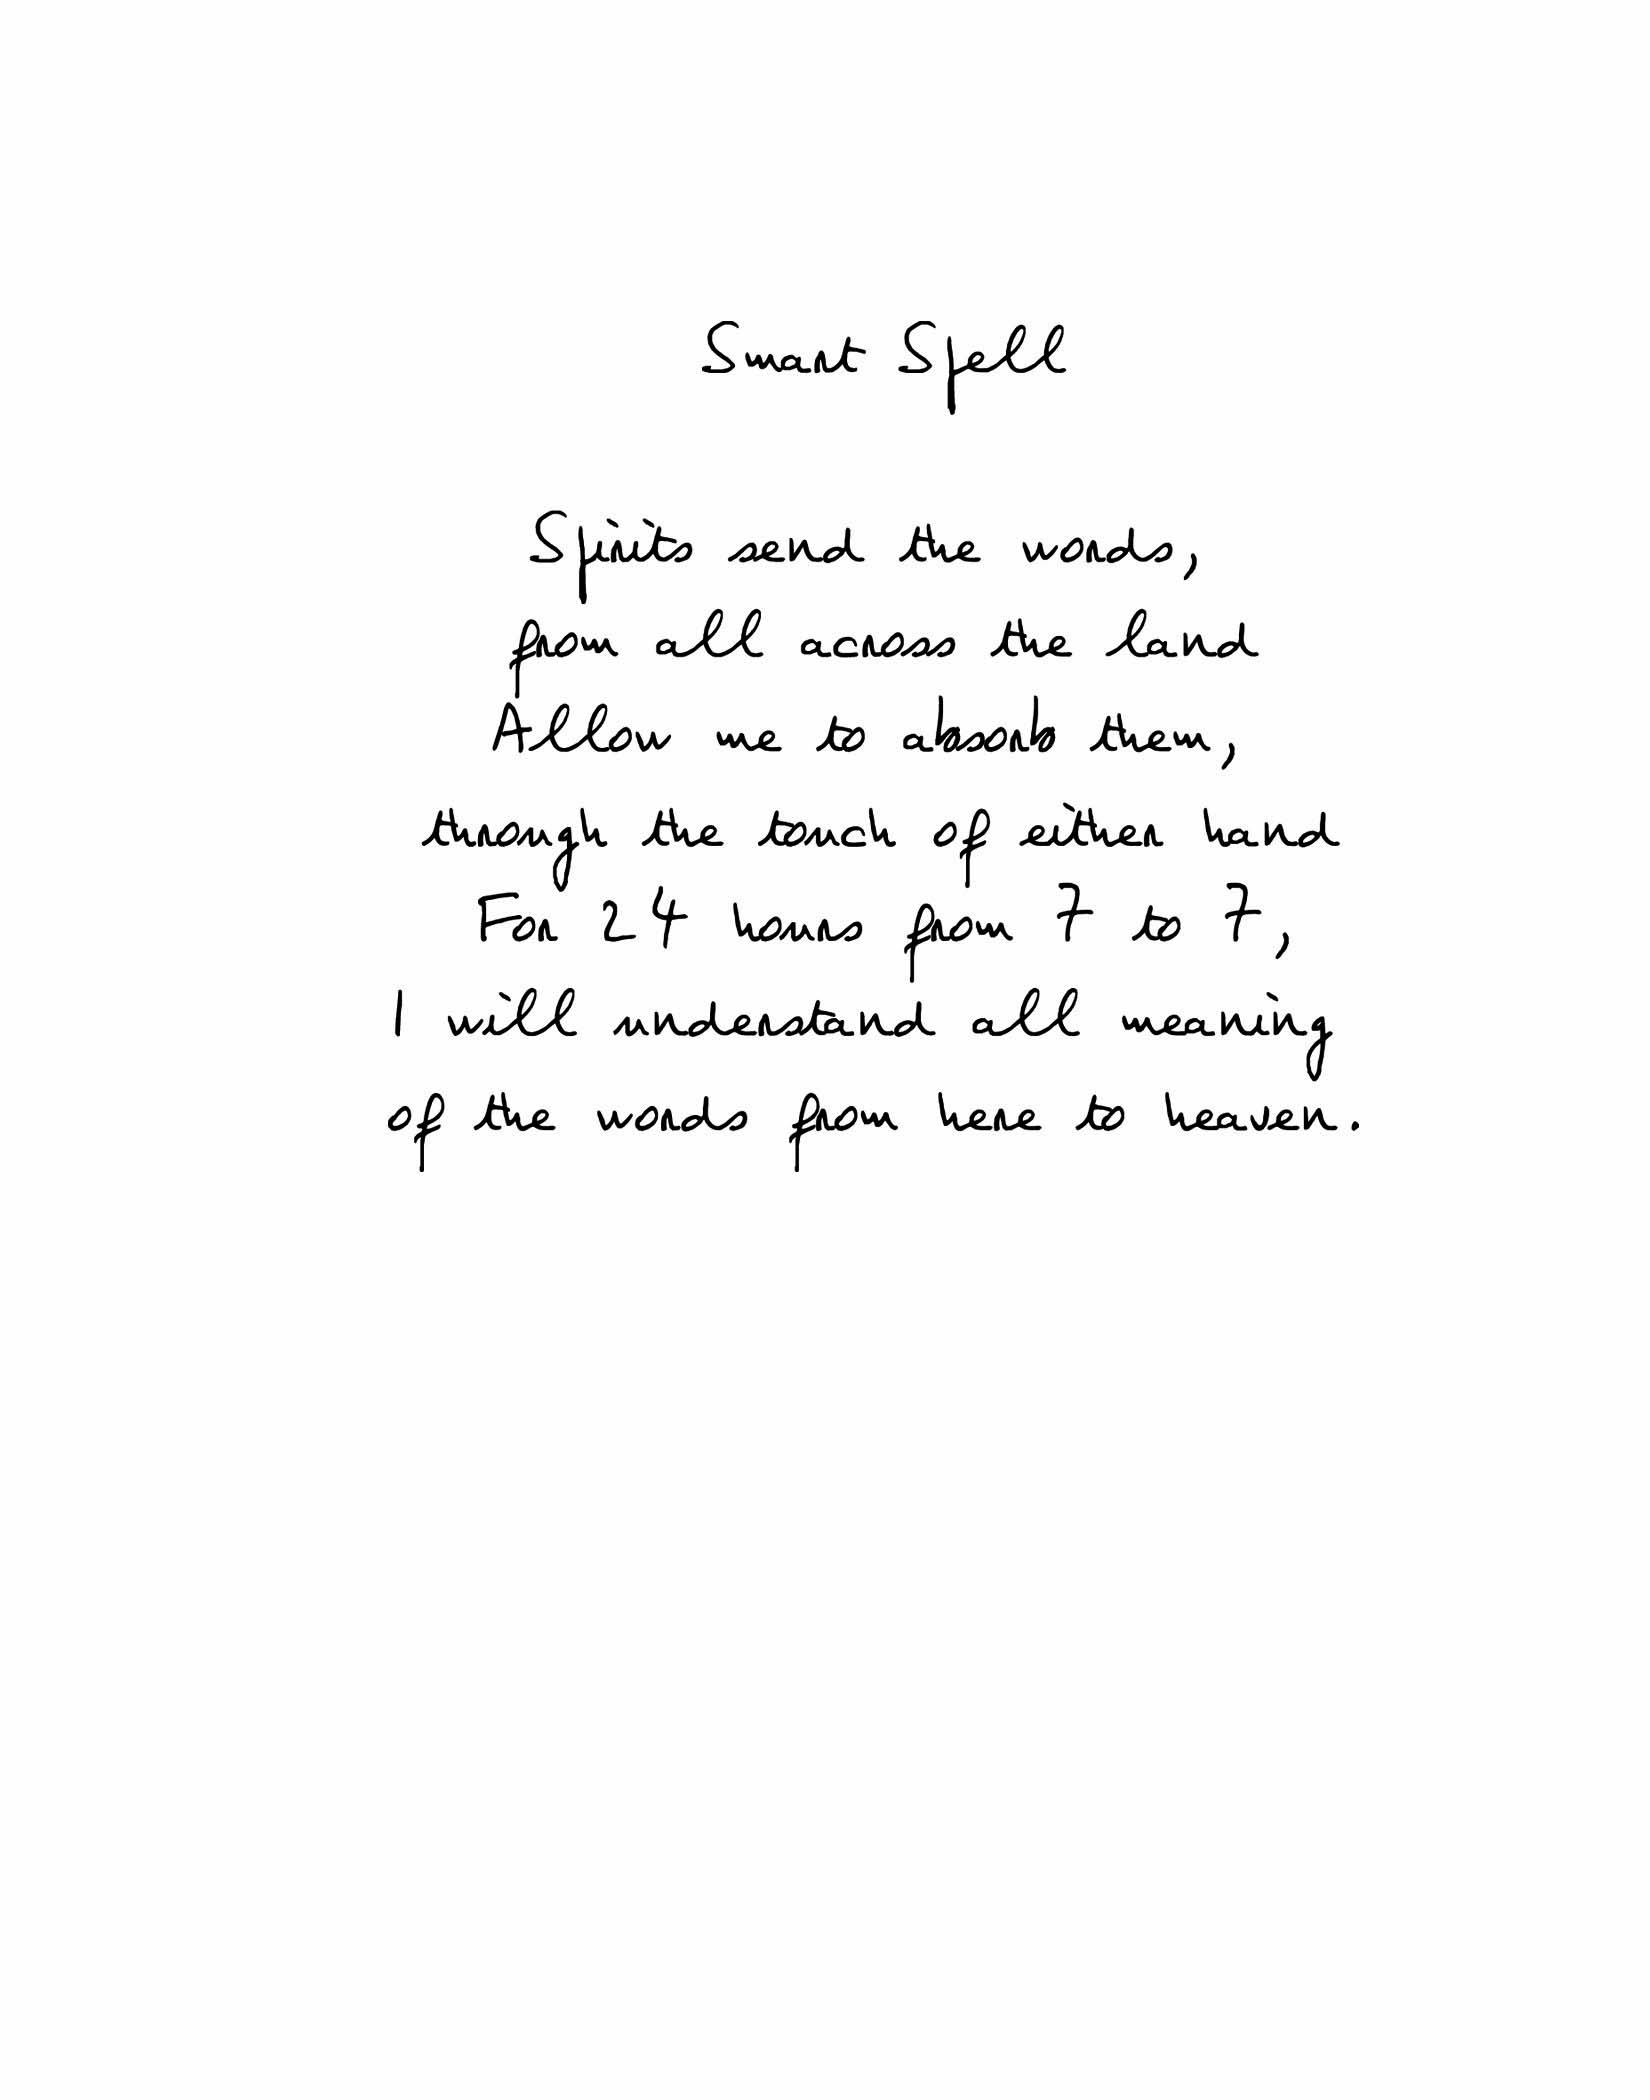 Smart Spell
Spirits send the words,
from all across the land
Allow me to absorb them,
through the touch of either hand
For 24 hours from 7 to 7,
I will understand all meaning
of the words from here to heaven.